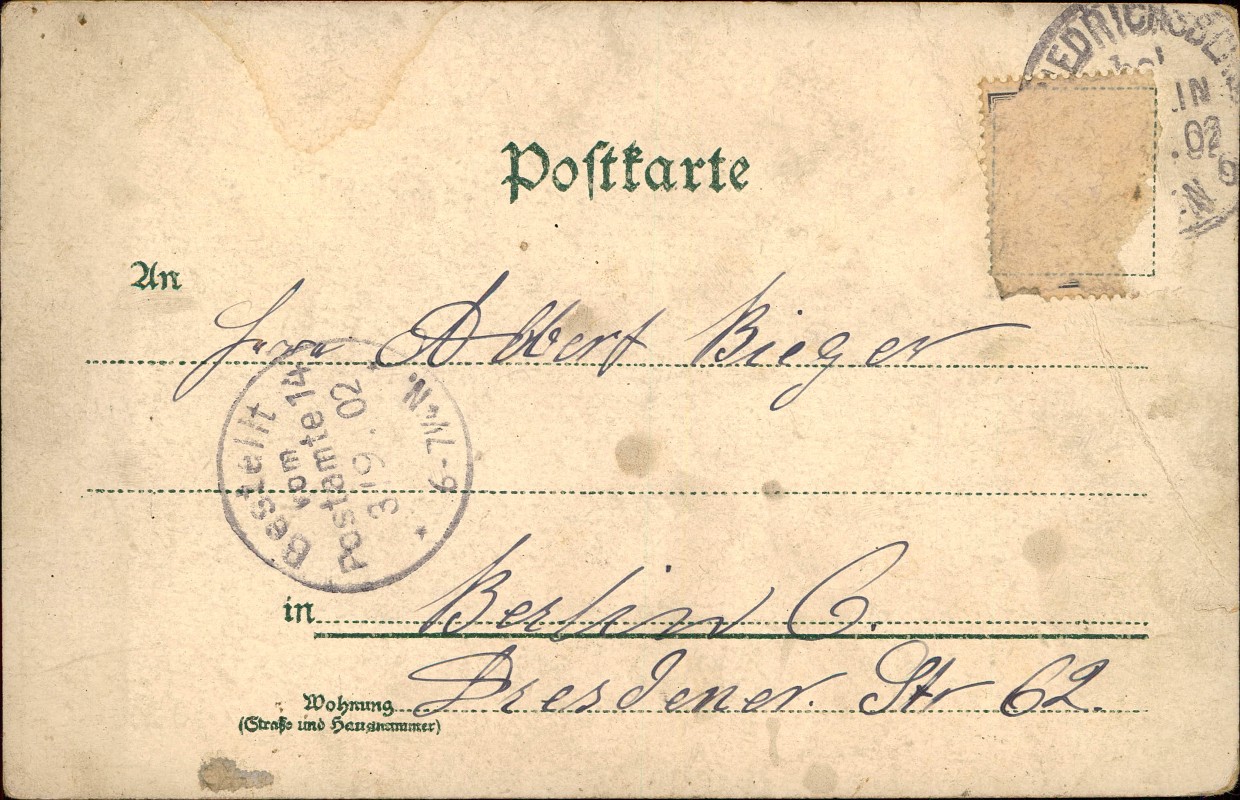 Postkarte
FRIEDRICHSB
IN
02
6
N
An
Herrn Albert Bieger
Bestellt
vom
Postamte 14
3/9. 02
6-7¼N.
in Berlin C.
Wohnung Dresdener Str 62.
(Straße und Hausnummer)